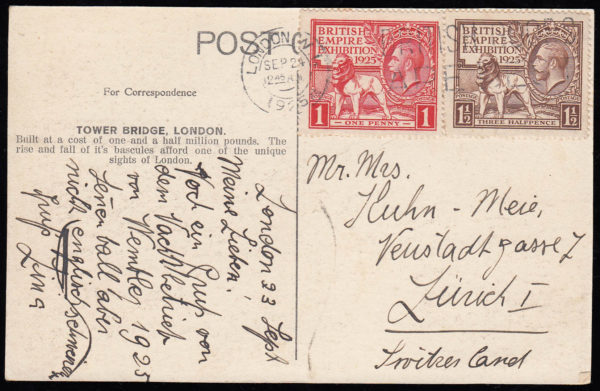 POST
LONDON
SEP 24
12.45 AM
1925
BRITISH
EMPIRE
EXHIBITION
1925
1 ONE PENNY 1
BRITISH
EMPIRE
EXHIBITION
1925
1½ THREE HALFPENCE 1½
For Correspondence
TOWER BRIDGE, LONDON.
Built at a cost of one and a half million pounds. The
rise and fall of it's bascules afford one of the unique
sights of London.
London 23 Sept
Meine Lieben,
Noch ein Gruß von
dem Nachtbetrieb
von Wembley 1925
aber
nicht englisch
Gruß
Lina
Mr. Mrs.
Kuhn - Meie,
Neustadtgasse 7
Zürich I
Switzerland